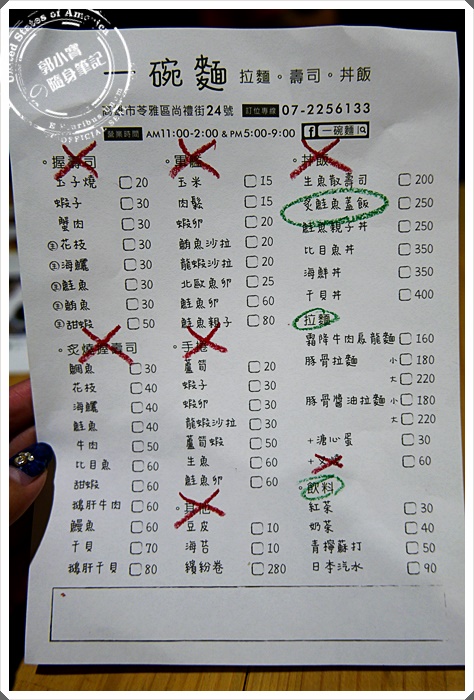 United States of America
郭小寶
隨身筆記
一碗麵 拉麵。壽司。丼飯
高雄市苓雅區尚禮街24號 訂位專線 07-2256133
營業時間 AM11:00-2:00 & PM5:00-9:00 f 一碗麵
。握壽司
玉子燒 20
蝦子 30
蟹肉 30
生花枝 30
生海鱺 30
生鮭魚 30
生鮪魚 30
生甜蝦 50
。炙燒握壽司
鯛魚 30
花枝 40
海鱺 40
鮭魚 40
牛肉 50
比目魚 60
甜蝦 60
鵝肝牛肉 60
鰻魚 60
干貝 70
鵝肝干貝 80
。軍艦
玉米 15
肉鬆 15
蝦卵 20
鮪魚沙拉 20
龍蝦沙拉 20
北歐魚卵 25
鮭魚卵 60
鮭魚親子 80
。手捲
蘆筍 20
蝦子 30
蝦卵 30
龍蝦沙拉 30
蘆筍蝦 50
生魚 60
鮭魚卵 60
。其他
豆皮 10
海苔 10
繽紛卷 280
。丼飯
生魚散壽司 200
炙鮭魚蓋飯 250
鮭魚親子丼 250
比目魚丼 350
海鮮丼 350
干貝丼 400
。拉麵
霜降牛肉烏龍麵 160
豚骨拉麵 小 180
大 220
豚骨醬油拉麵 小 180
大 220
+溏心蛋 30
+ 60
。飲料
紅茶 30
奶茶 40
青檸蘇打 50
日本汽水 90